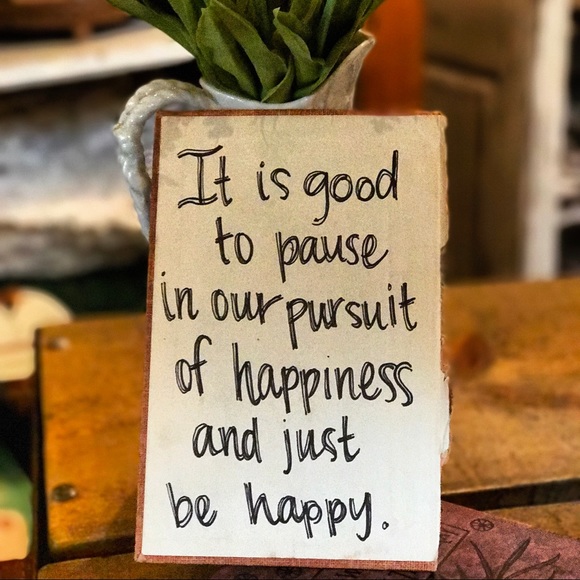 It is good
to pause
in our pursuit
of happiness
and just
be happy.